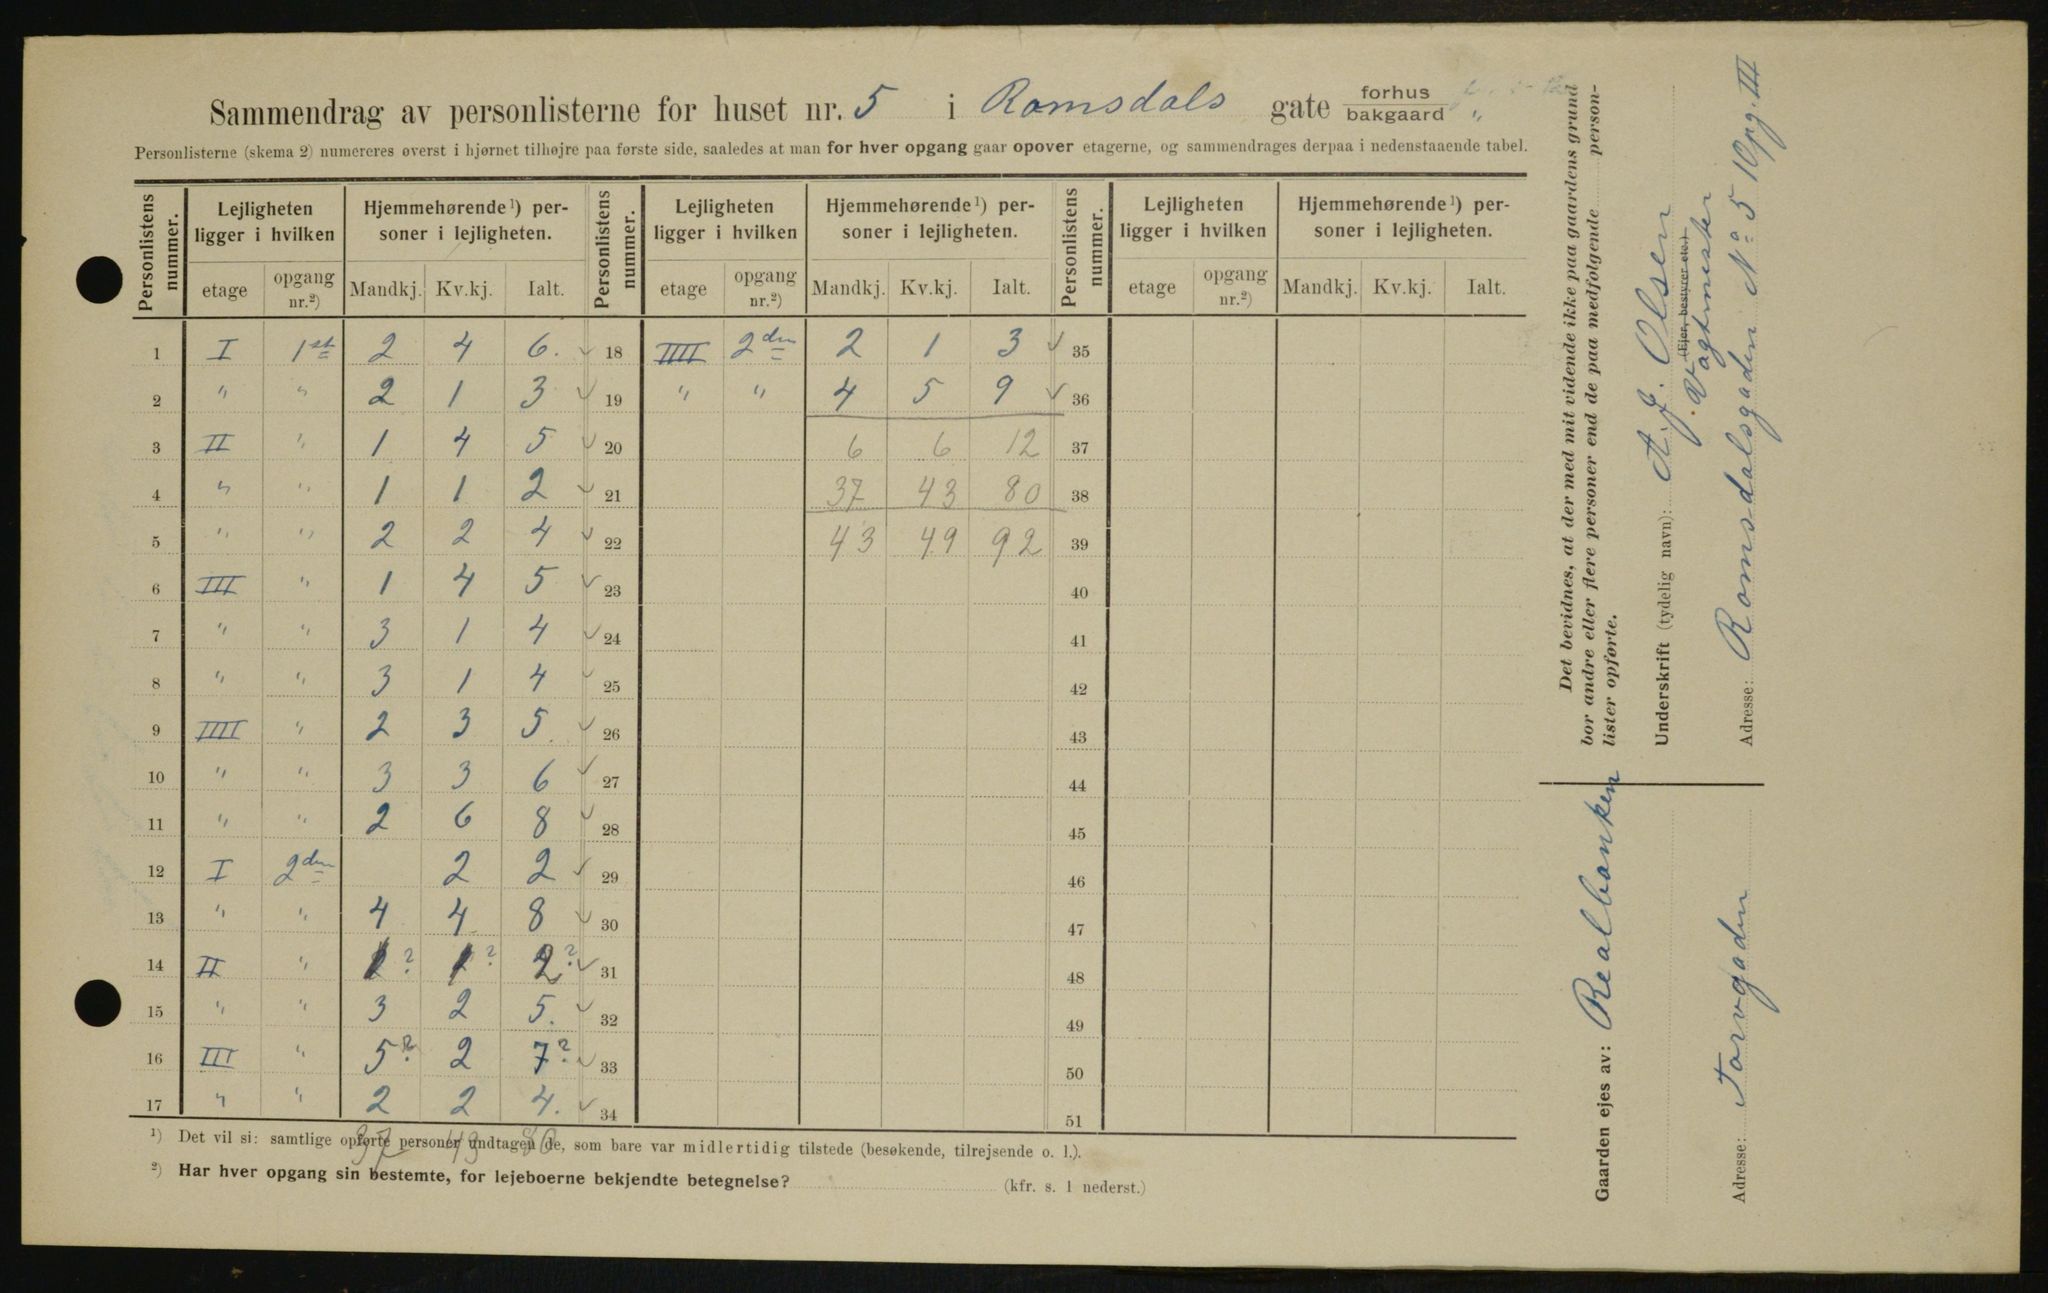 Sammendrag av personlisterne for huset nr. 5 i Romsdals gate forhus bakgaard "
Personlisterne (skema 2) numereres øverst i hjørnet tilhøjre paa første side, saaledes at man for hver opgang gaar opover etagerne, og sammendrages derpaa i nedenstaaende tabel.
Personlistens nummer. Lejligheten ligger i hvilken Hjemmehørende¹) personer i lejligheten. Personlistens nummer. Lejligheten ligger i hvilken Hjemmehørende¹) personer i lejligheten. Personlistens nummer. Lejligheten ligger i hvilken Hjemmehørende¹) personer i lejligheten.
etage opgang nr.²) Mandkj. Kv.kj. Ialt. etage opgang nr.²) Mandkj. Kv.kj. Ialt. etage opgang nr.²) Mandkj. Kv.kj. Ialt.
1 I 1ste 2 4 6. ✓ 18 IIII 2den 2 1 3 ✓ 35
2 " " 2 1 3 ✓ 19 " " 4 5 9 ✓ 36
3 II " 1 4 5 ✓ 20 6 6 12 37
4 " " 1 1 2 ✓ 21 37 43 80 38
5 " " 2 2 4 ✓ 22 43 49 92 39
6 III " 1 4 5 ✓ 23 40
7 " " 3 1 4 ✓ 24 41
8 " " 3 1 4 ✓ 25 42
9 IIII " 2 3 5. ✓ 26 43
10 " " 3 3 6 ✓ 27 44
11 " " 2 6 8 ✓ 28 45
12 I 2den 2 2 ✓ 29 46
13 " " 4 4 8 ✓ 30 47
14 II " 1? 1? 2? ✓ 31 48
15 " " 3 2 5. ✓ 32 49
16 III " 5? 2 7? ✓ 33 50
17 " " 2 2 4. ✓ 34 51
37 43 80
¹) Det vil si: samtlige opførte personer undtagen de, som bare var midlertidig tilstede (besøkende, tilrejsende o. l.).
²) Har hver opgang sin bestemte, for lejeboerne bekjendte betegnelse? (kfr. s. 1 nederst.)
Det bevidnes, at der med mit vidende ikke paa gaardens grund
bor andre eller flere personer end de paa medfølgende person-
lister opførte.
Underskrift (tydelig navn): A. J. Olsen
(Ejer, bestyrer etc.)
Vagtmester
Adresse: Romsdalsgaden No 5 Opg. III
Gaarden ejes av: Realbanken
Adresse: Torvgaden